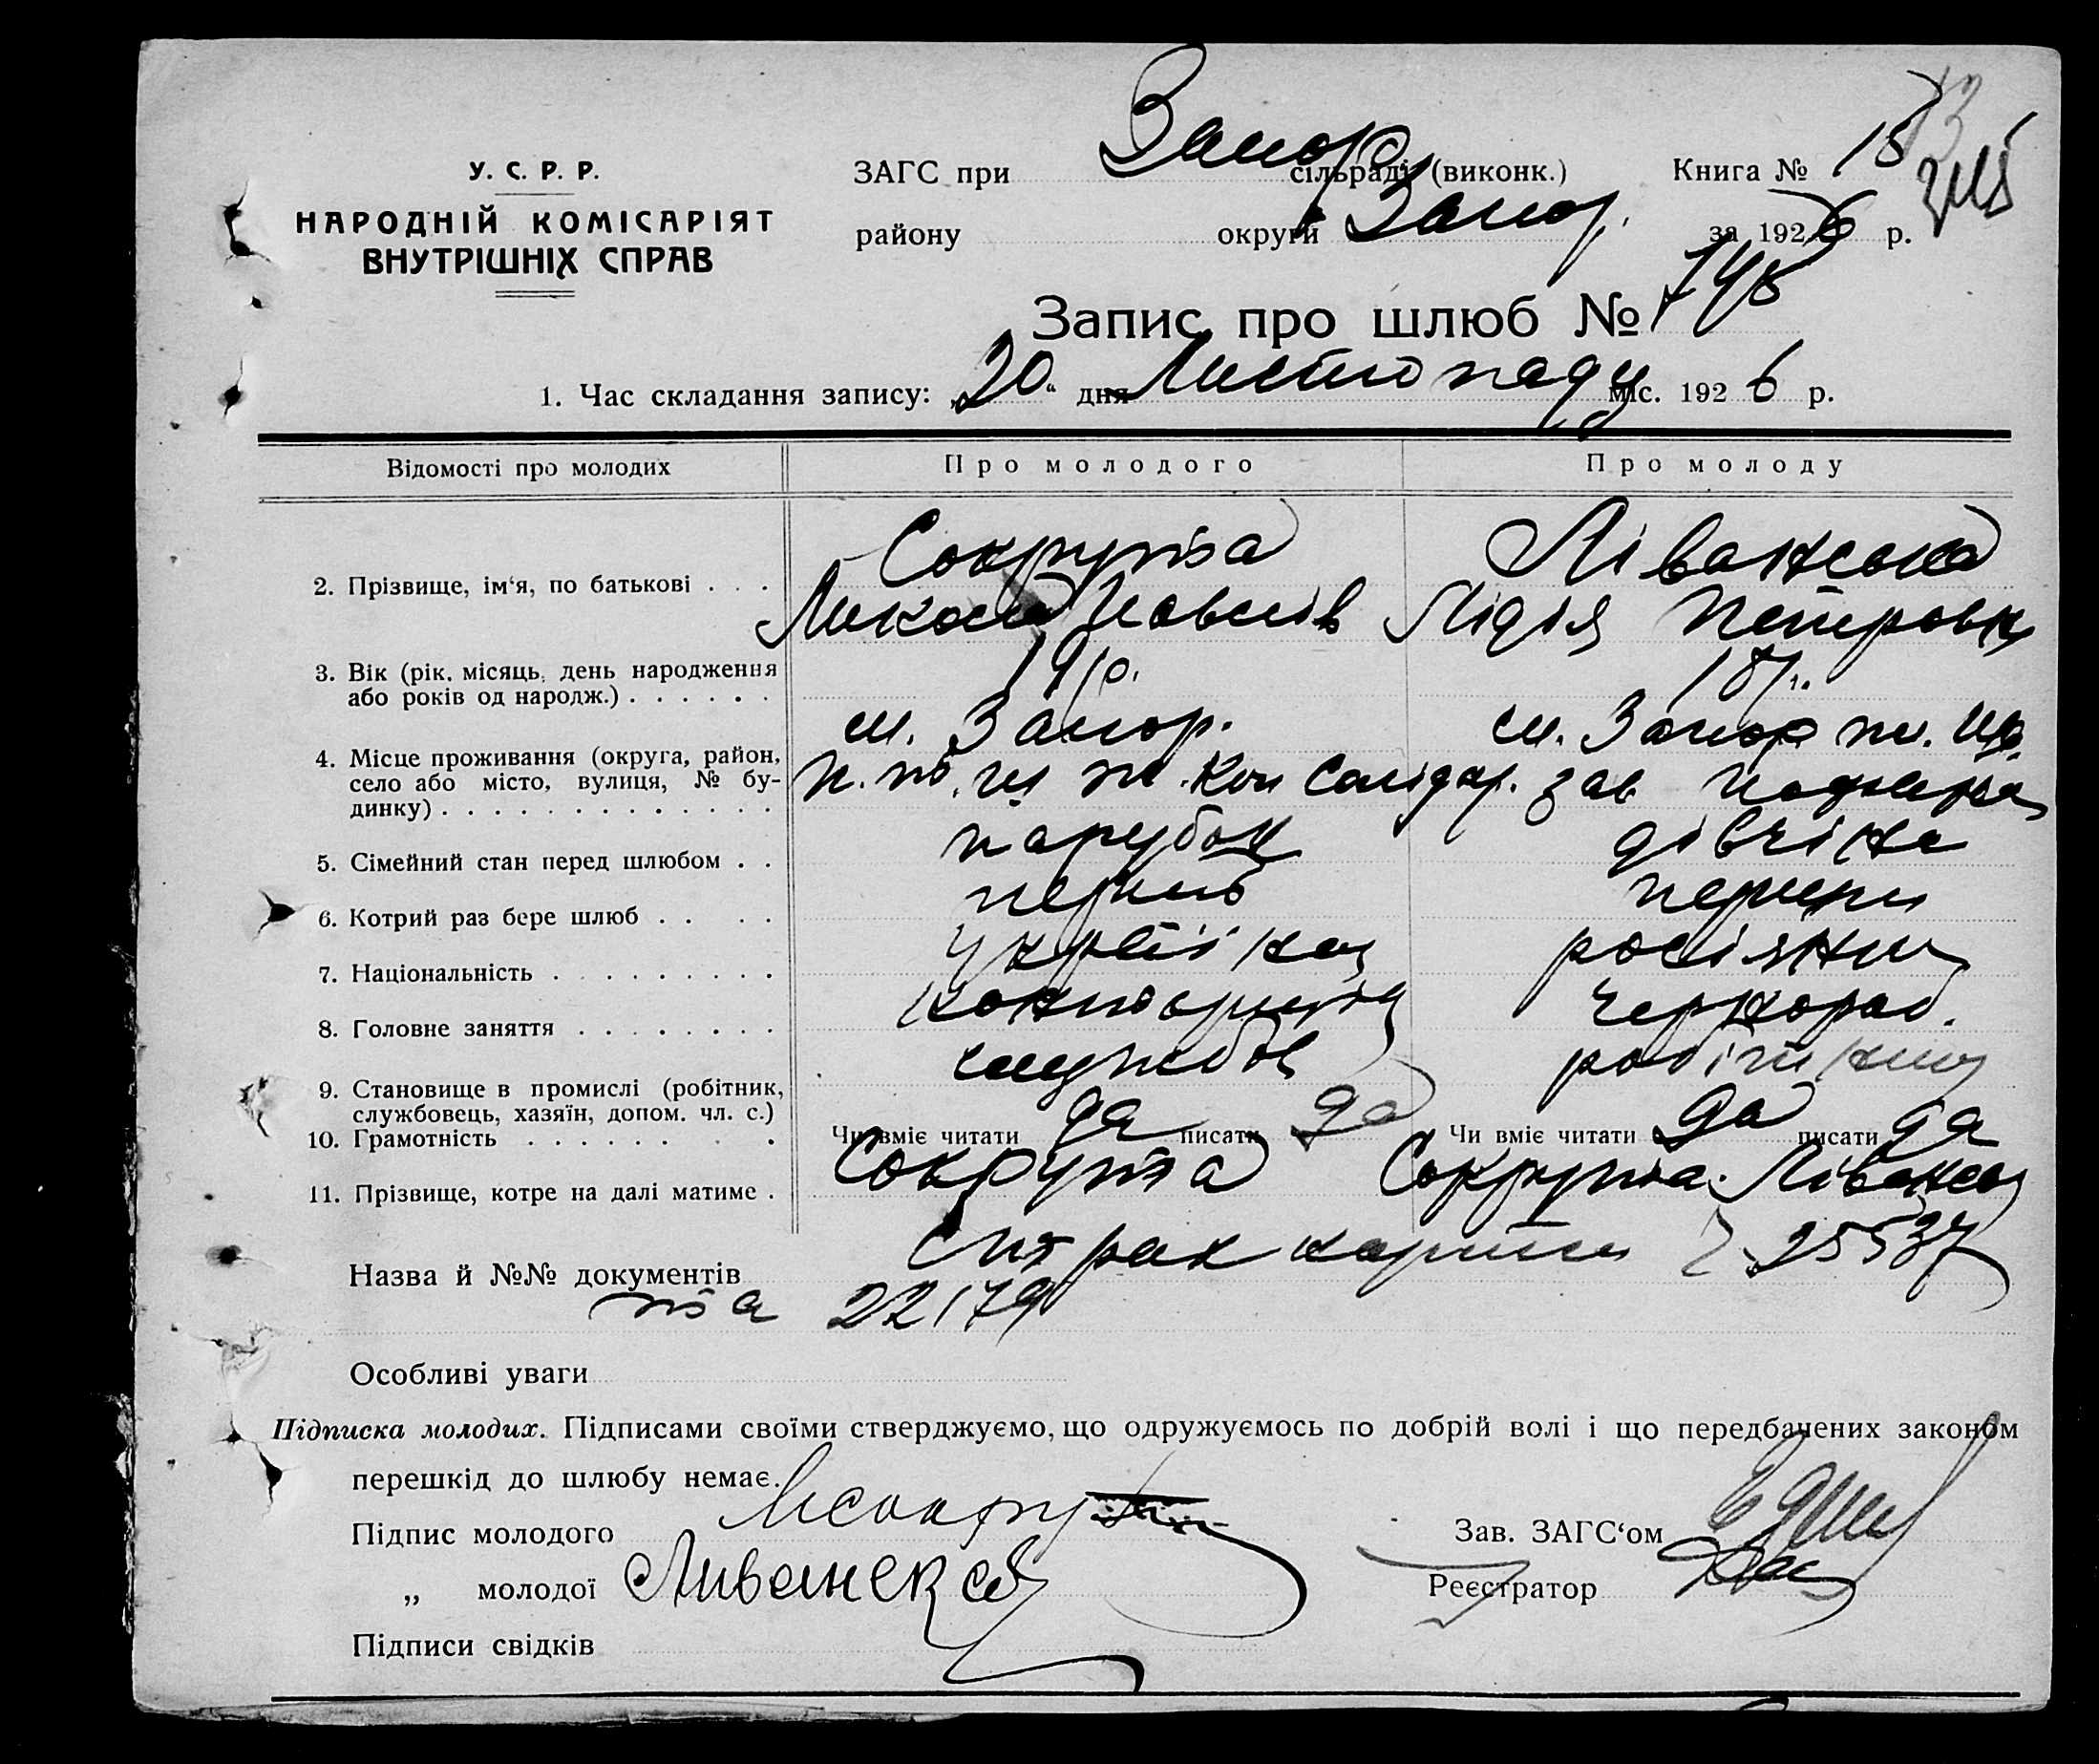 У. С. Р. Р.
НАРОДНІЙ КОМІСАРІЯТ
ВНУТРІШНІХ СПРАВ
ЗАГС при Запор. сільраді (виконк.) Книга № 15
району округи Запор. за 1926 р.
Запис про шлюб № 748
1. Час складання запису: „20“ дня Листопаду міс. 1926 р.
Відомості про молодих Про молодого Про молоду
Сокрута Ліванська
2. Прізвище, ім‘я, по батькові . . .
Микола Павлів Лідія Петровна
3. Вік (рік, місяць, день народження 19 р. 18 р.
або років од народж.) . . . . . .
м. Запор. м. Запор
4. Місце проживання (округа, район,
село або місто, вулиця, № бу-
динку) . . . . . . . . . . . . .
парубок дівчіна
5. Сімейний стан перед шлюбом . .
перший перший
6. Котрий раз бере шлюб . . . .
7. Національність . . . . . . . . .
8. Головне заняття . . . . . . . .
Чернороб.
службов робітниц
9. Становище в промислі (робітник,
службовець, хазяїн, допом. чл. с.)
10. Грамотність . . . . . . . . Чи вміє читати да писати да Чи вміє читати да писати да
11. Прізвище, котре на далі матиме . Сокрута Сокрута-Ліванськ
Страх карти 25537
Назва й №№ документів
та 22179
Особливі уваги
Підписка молодих. Підписами своїми стверджуємо, що одружуємось по добрій волі і що передбачених законом
перешкід до шлюбу немає.
Підпис молодого Зав. ЗАГС‘ом
„ молодої Ливанская Реєстратор
Підписи свідків